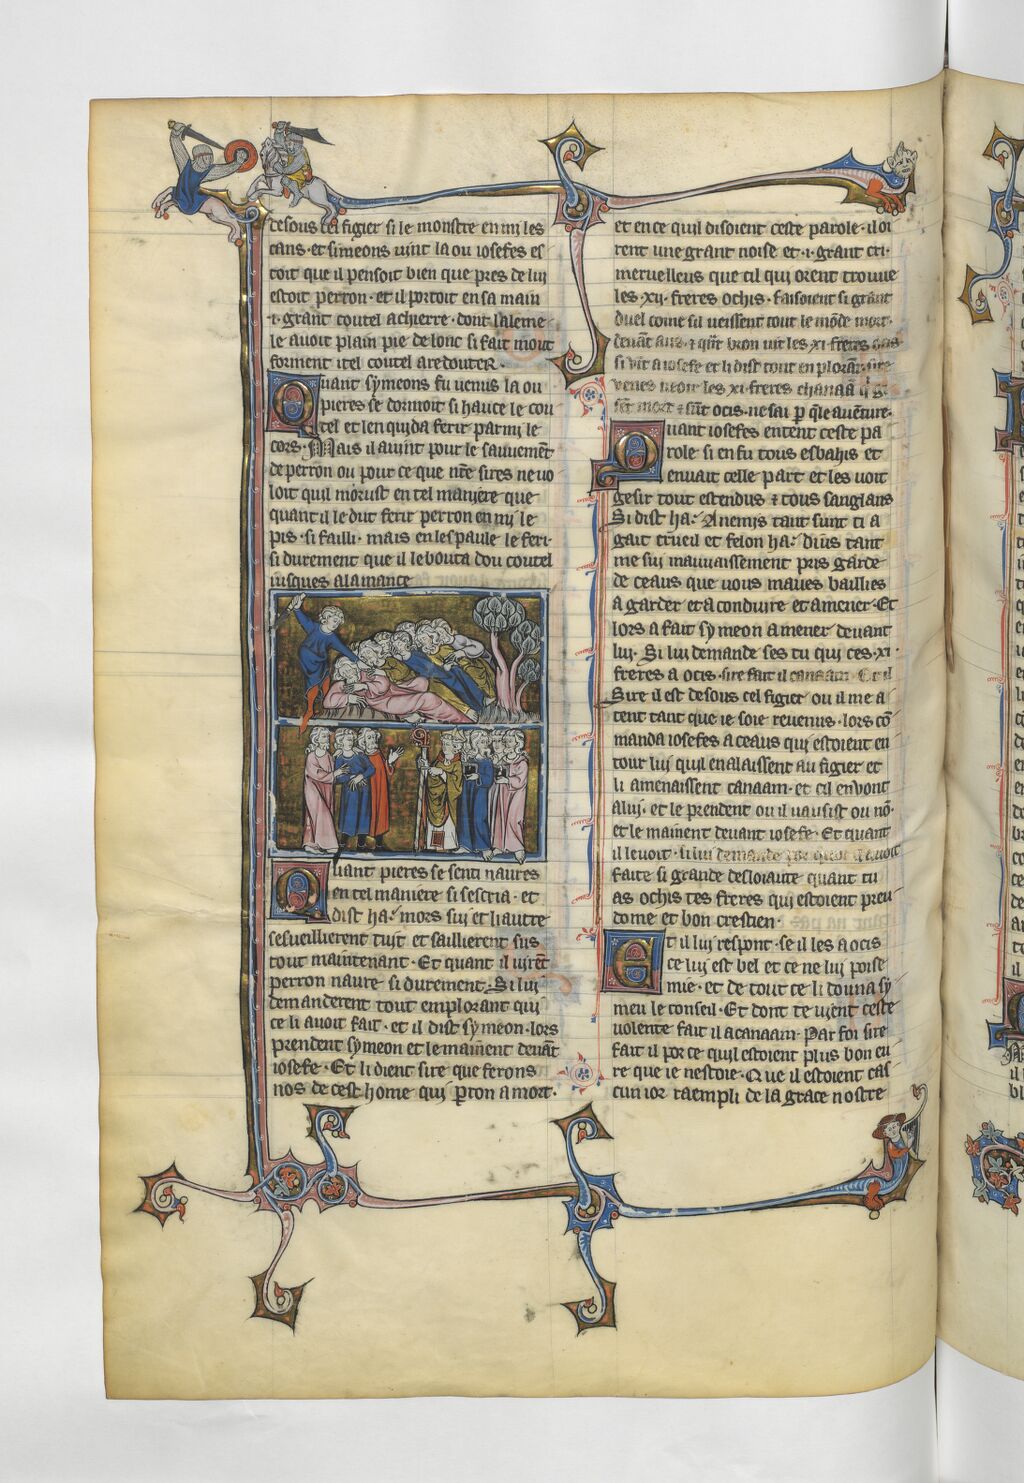 desous cel figier si le monstre en mi les
cans · et simeons vint la ou iosefes es
toit que il pensoit bien que pres de lui
estoit perron · et il portoit en sa main
·i· grant coutel achierre · dont laleme
le auoit plain pie de lonc si fait mout
forment itel coutel a redouter ·
Quant symeons fu uenus la ou
pieres se dormoit si hauce le cou
tel et len quida ferir par mi le
cors · Mais il auint pour le sauuemēt
de perron ou pour ce que nr̄e sires ne uo
loit quil morust en tel maniere que
quant il le dut ferir perron en mi le
pis · si failli · mais en lespaule le feri ·
si durement que il le bouta dou coutel
iusques a la mance
Quant pieres se senti naures
en tel maniere si sescria · et
dist ha · mors sui et li autre
sesueillierent tuit et saillierent sus
tout maintenant · Et quant il uirēt
perron naure si durement · Si lui
demanderent tout emplorant qui
ce li auoit fait · et il dist symeon · lors
prendent symeon et le mainent deuāt
iosefe · Et li dient sire que ferons
nos de cest home qui perron a mort ·
et en ce quil disoient ceste parole · il oi
rent une grant noise et ·i· grant cri ·
merueilleus que cil qui orent trouue
les ·xii· freres ochis · faisoient si grāt
duel come sil ueissent tout le mōde mort ·
deuāt aus · ⁊ q̄nt bron uit les xi freres
si uīt a iosefe et li dist tout en plorāt · sire
uenes ueoir les xi · freres chanaā
mort ⁊ sūt ocis · ne sai p̄ q̄le auēture ·
Quant iosefes entent ceste pa
role si en fu tous esbahis et
en uait celle part et les uoit
gesir tout estendus ⁊ tous sanglans
Si dist ha · Anemis tant sunt ti a
gait crueil et felon ha · dius tant
me sui mauuaissement pris garde
de ceaus que uous maues baillies
a garder et a conduire et a mener · Et
lors a fait symeon amener deuant
lui · Si lui demande ses tu qui ces ·xi ·
freres a ocis · sire fait il canaam · Et il
Sire il est desous cel figier ou il me a
tent tant que ie soie reuenus · lors cō
manda iosefes a ceaus qui estoient en
tour lui quil en alaissent au figier et
li amenaissent canaam · et cil en uont
a lui · et le prendent ou il uausist ou nō ·
et le mainent deuant iosefe · Et quant
il le uoit · si lui demande por quoi il auoit
faite si grande desloiaute quant tu
as ochis tes freres qui estoient preu
dome et bon crestien ·
Et il lui respont · se il les a ocis
ce lui est bel et ce ne lui poise
mie · et de tout ce li douna sy
meu le conseil · Et dont te uient ceste
uolente fait il a canaam · Par foi sire
fait il por ce quil estoient plus bon eu
re que ie nestoie · Que il estoient cas
cun ior raempli de la grace nostre